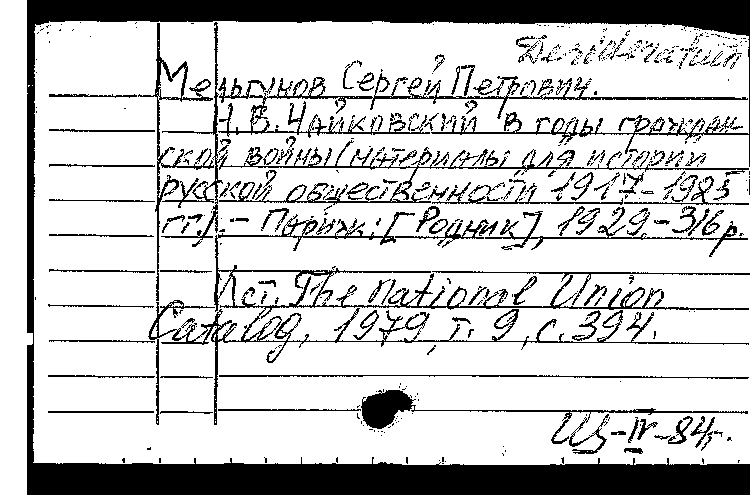 Desideratum
Мельгунов Сергей Петрович.
Н.В.Чайковский в годы граждан-
ской войны (материалы для истории
русской общественности 1917-1925
гг.).- Париж: [Родник], 1929.-316 р.
Ист. The national Union
Catalog, 1979, т. 9, с. 394.
ИЦ-IV-84г.